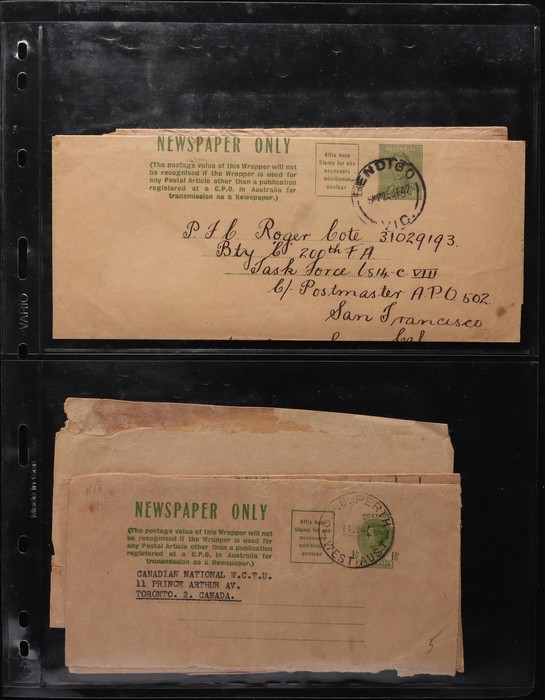 NEWSPAPER ONLY
(The postage value of this Wrapper will not
be recognised if the Wrapper is used for
any Postal Article other than a publication
registered at a G.P.O. in Australia for
transmission as a Newspaper.)
Affix here
Stamp for any
necessary
additional
postage
AUSTRALIA
BENDIGO
VIC.
P.F.C Roger Cote 31029193.
Bty C. 200th F.A.
Task Force 6814-C. VIII
C/- Postmaster A.P.O. 502.
San Francisco
VARIO
NEWSPAPER ONLY
(The postage value of this Wrapper will not
be recognised if the Wrapper is used for
any Postal Article other than a publication
registered at a G.P.O. in Australia for
transmission as a Newspaper.)
Affix here
Stamp for any
necessary
additional
postage
PERTH
WEST AUST
CANADIAN NATIONAL W.C.T.U.
11 PRINCE ARTHUR AV.
TORONTO. 2. CANADA.
5
Made in Germ